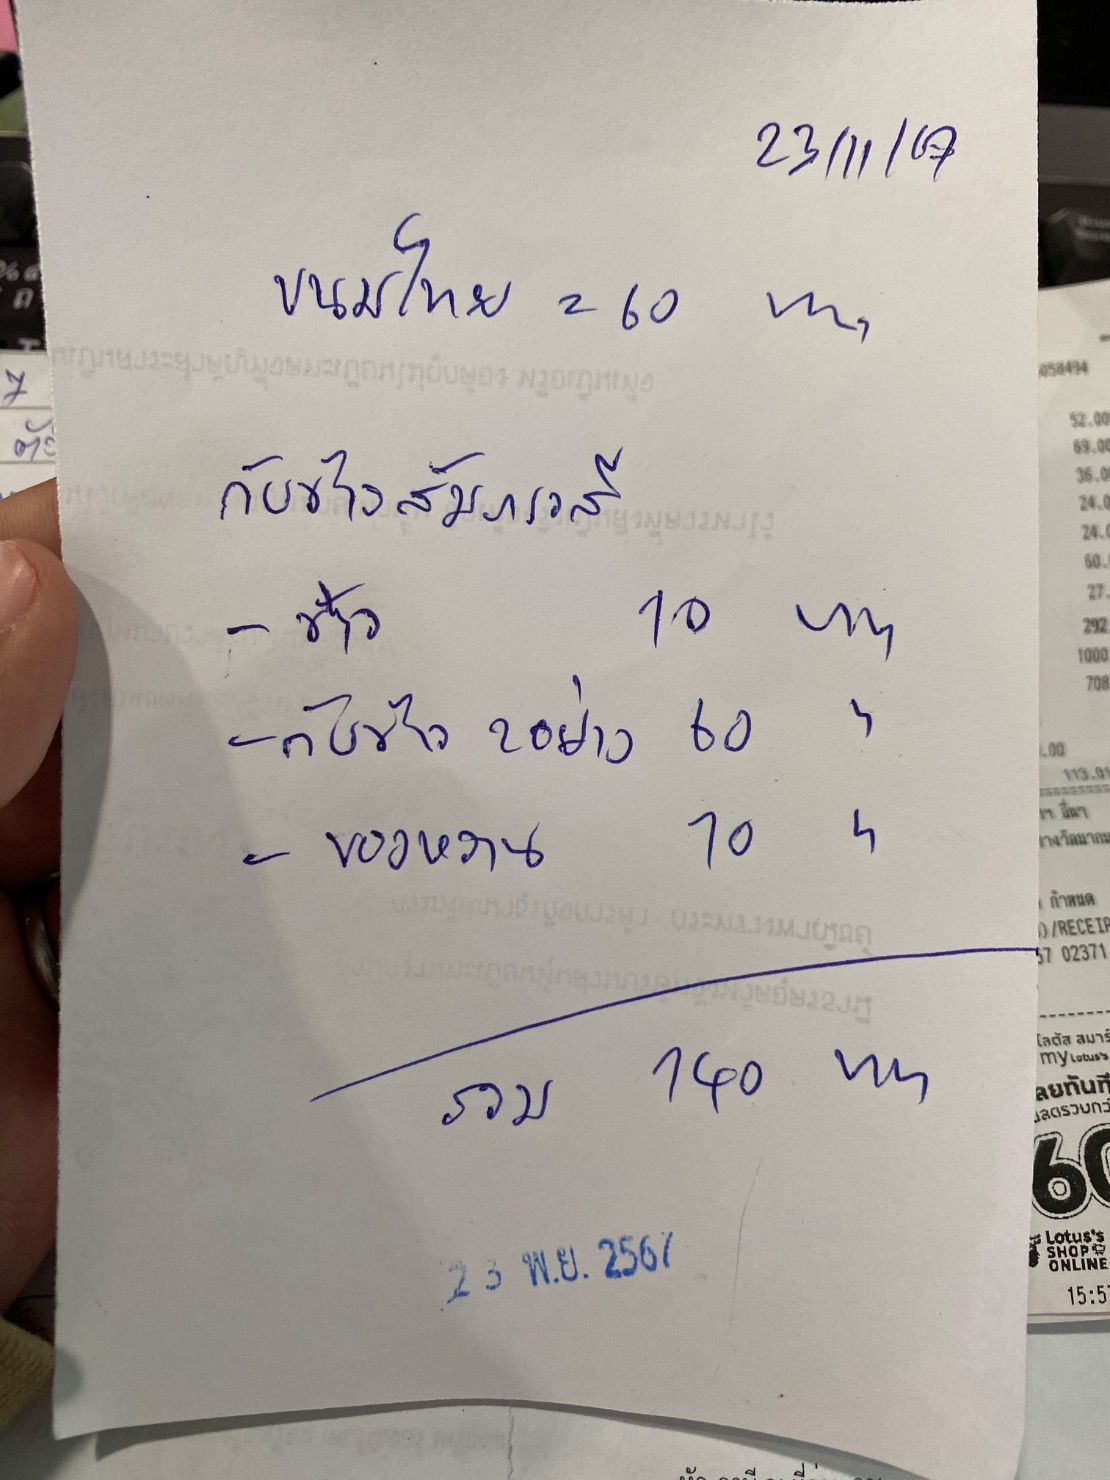 23/11/67
ขนมไทย = 60 บาท
กับข้าวสัมภเวสี
- ข้าว 10 บาท
- กับข้าว 2 อย่าง 60 "
- ของหวาน 10 "
รวม 140 บาท
23 พ.ย. 2567
7
058494
52.00
69.00
36.00
24.0
24.0
60.
27.
292.
1000
708
.00
113.01
กำหนด
)/RECEIP
57 02371
โลตัส สมาร์
my Lotus's
ลยทันที
ลดรวมกว่
60
Lotus's
SHOP
ONLINE
15:57